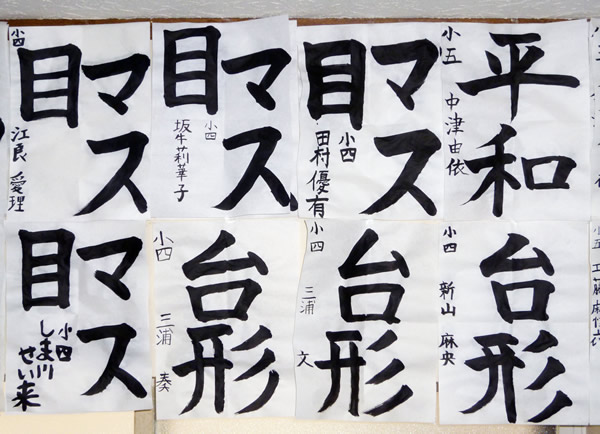 マス目
小四
江良 愛理
マス目
小四
坂牛莉華子
マス目
小四
田村優有
平和
小五
中津由依
マス目
小四
しま川
せい来
台形
小四
三浦 奏
台形
小四
三浦 文
台形
小四
新山 麻央